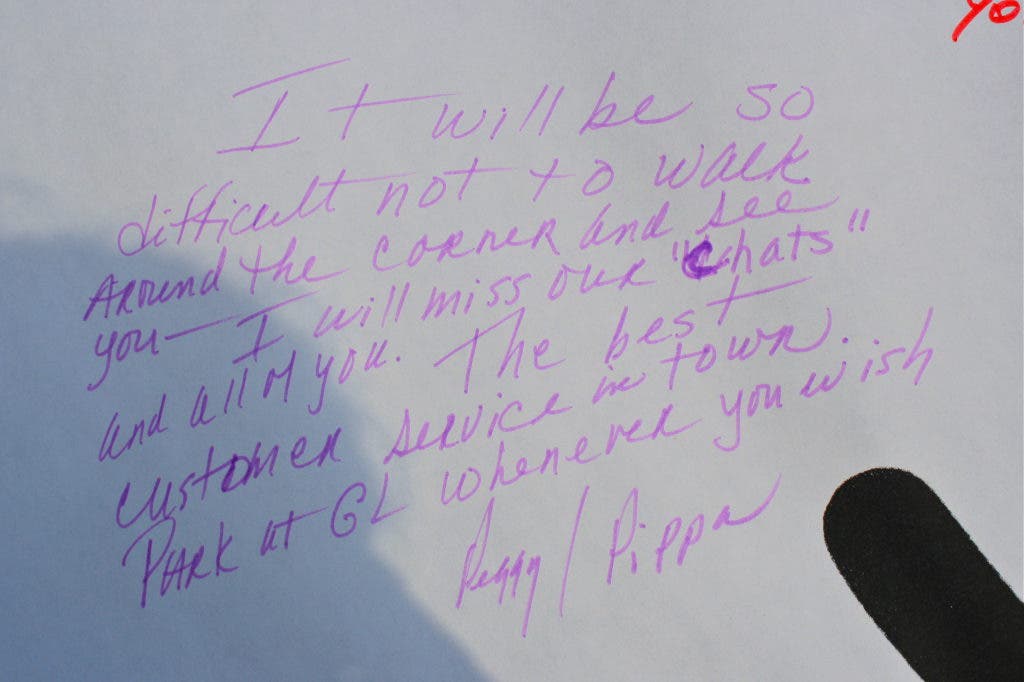 yo
It will be so
difficult not to walk
Around the corner and see
you— I will miss our "chats"
and all of you. The best
customer service in town.
Park at GL whenever you wish
Peggy / Pippa